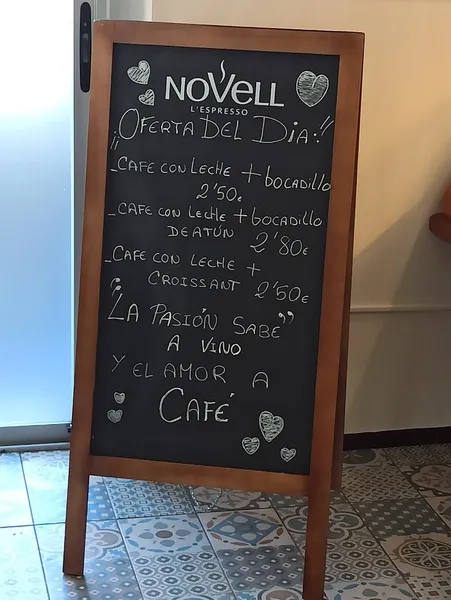 NOVELL
L'ESPRESSO
¡¡OFERTA DEL DIA!!
-CAFE CON LECHE + bocadillo
2'50€
-CAFE CON LECHE + bocadillo
DE ATÚN 2'80€
-CAFE CON LECHE +
CROISSANT 2'50€
"LA PASIÓN SABE"
A VINO
Y EL AMOR A
CAFÉ